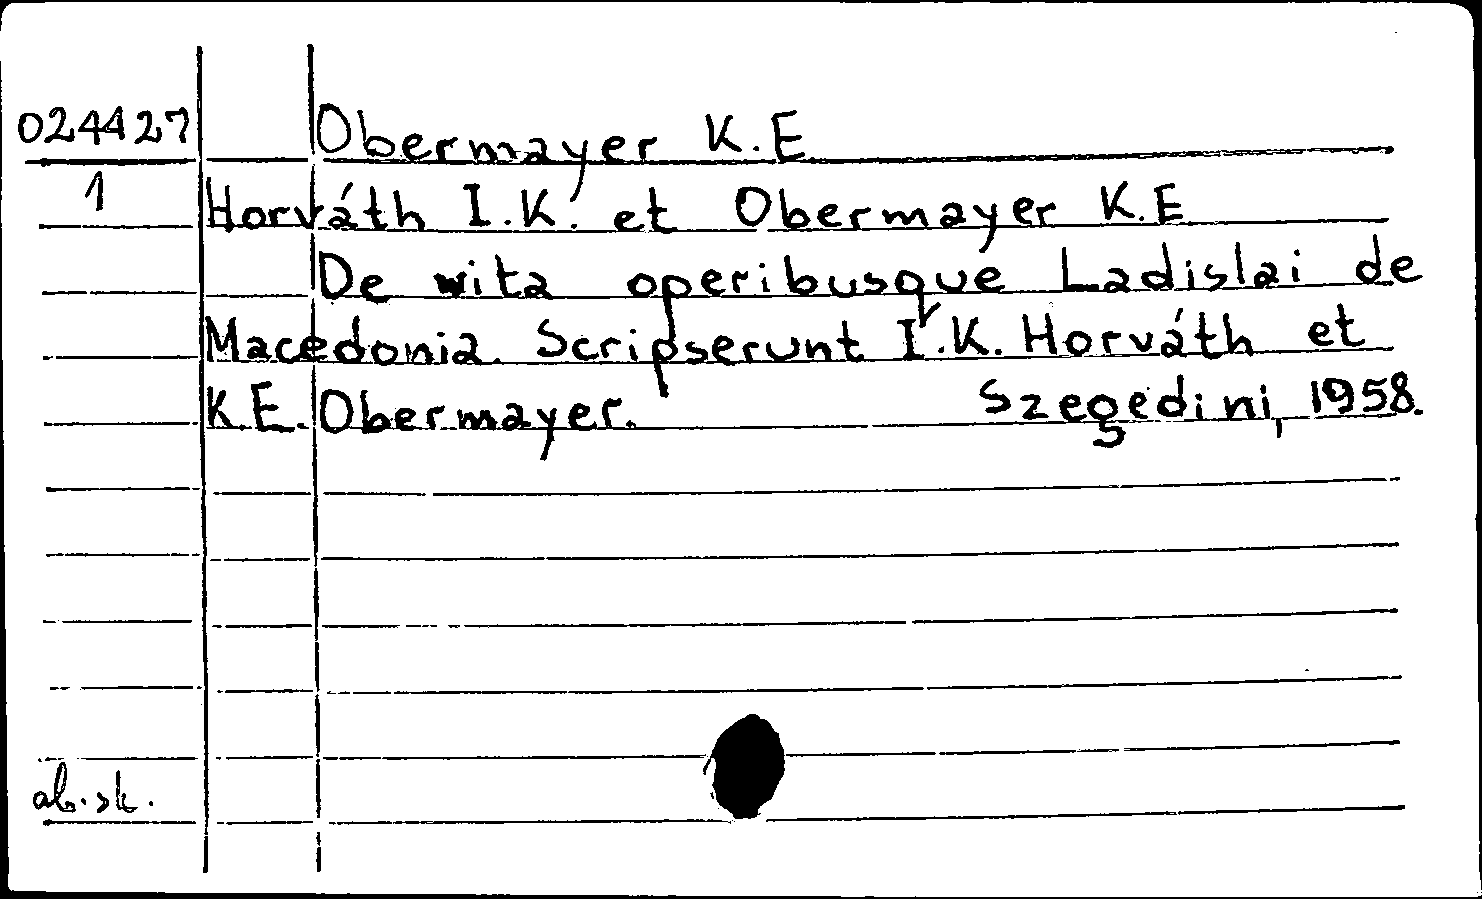 024427 Obermayer K.E
1 Horváth I.K. et Obermayer K.E
De vita operibusque Ladislai de
Macedonia. Scripserunt I.K. Horváth et
K.E. Obermayer. Szegedini, 1958.
ab.sk.